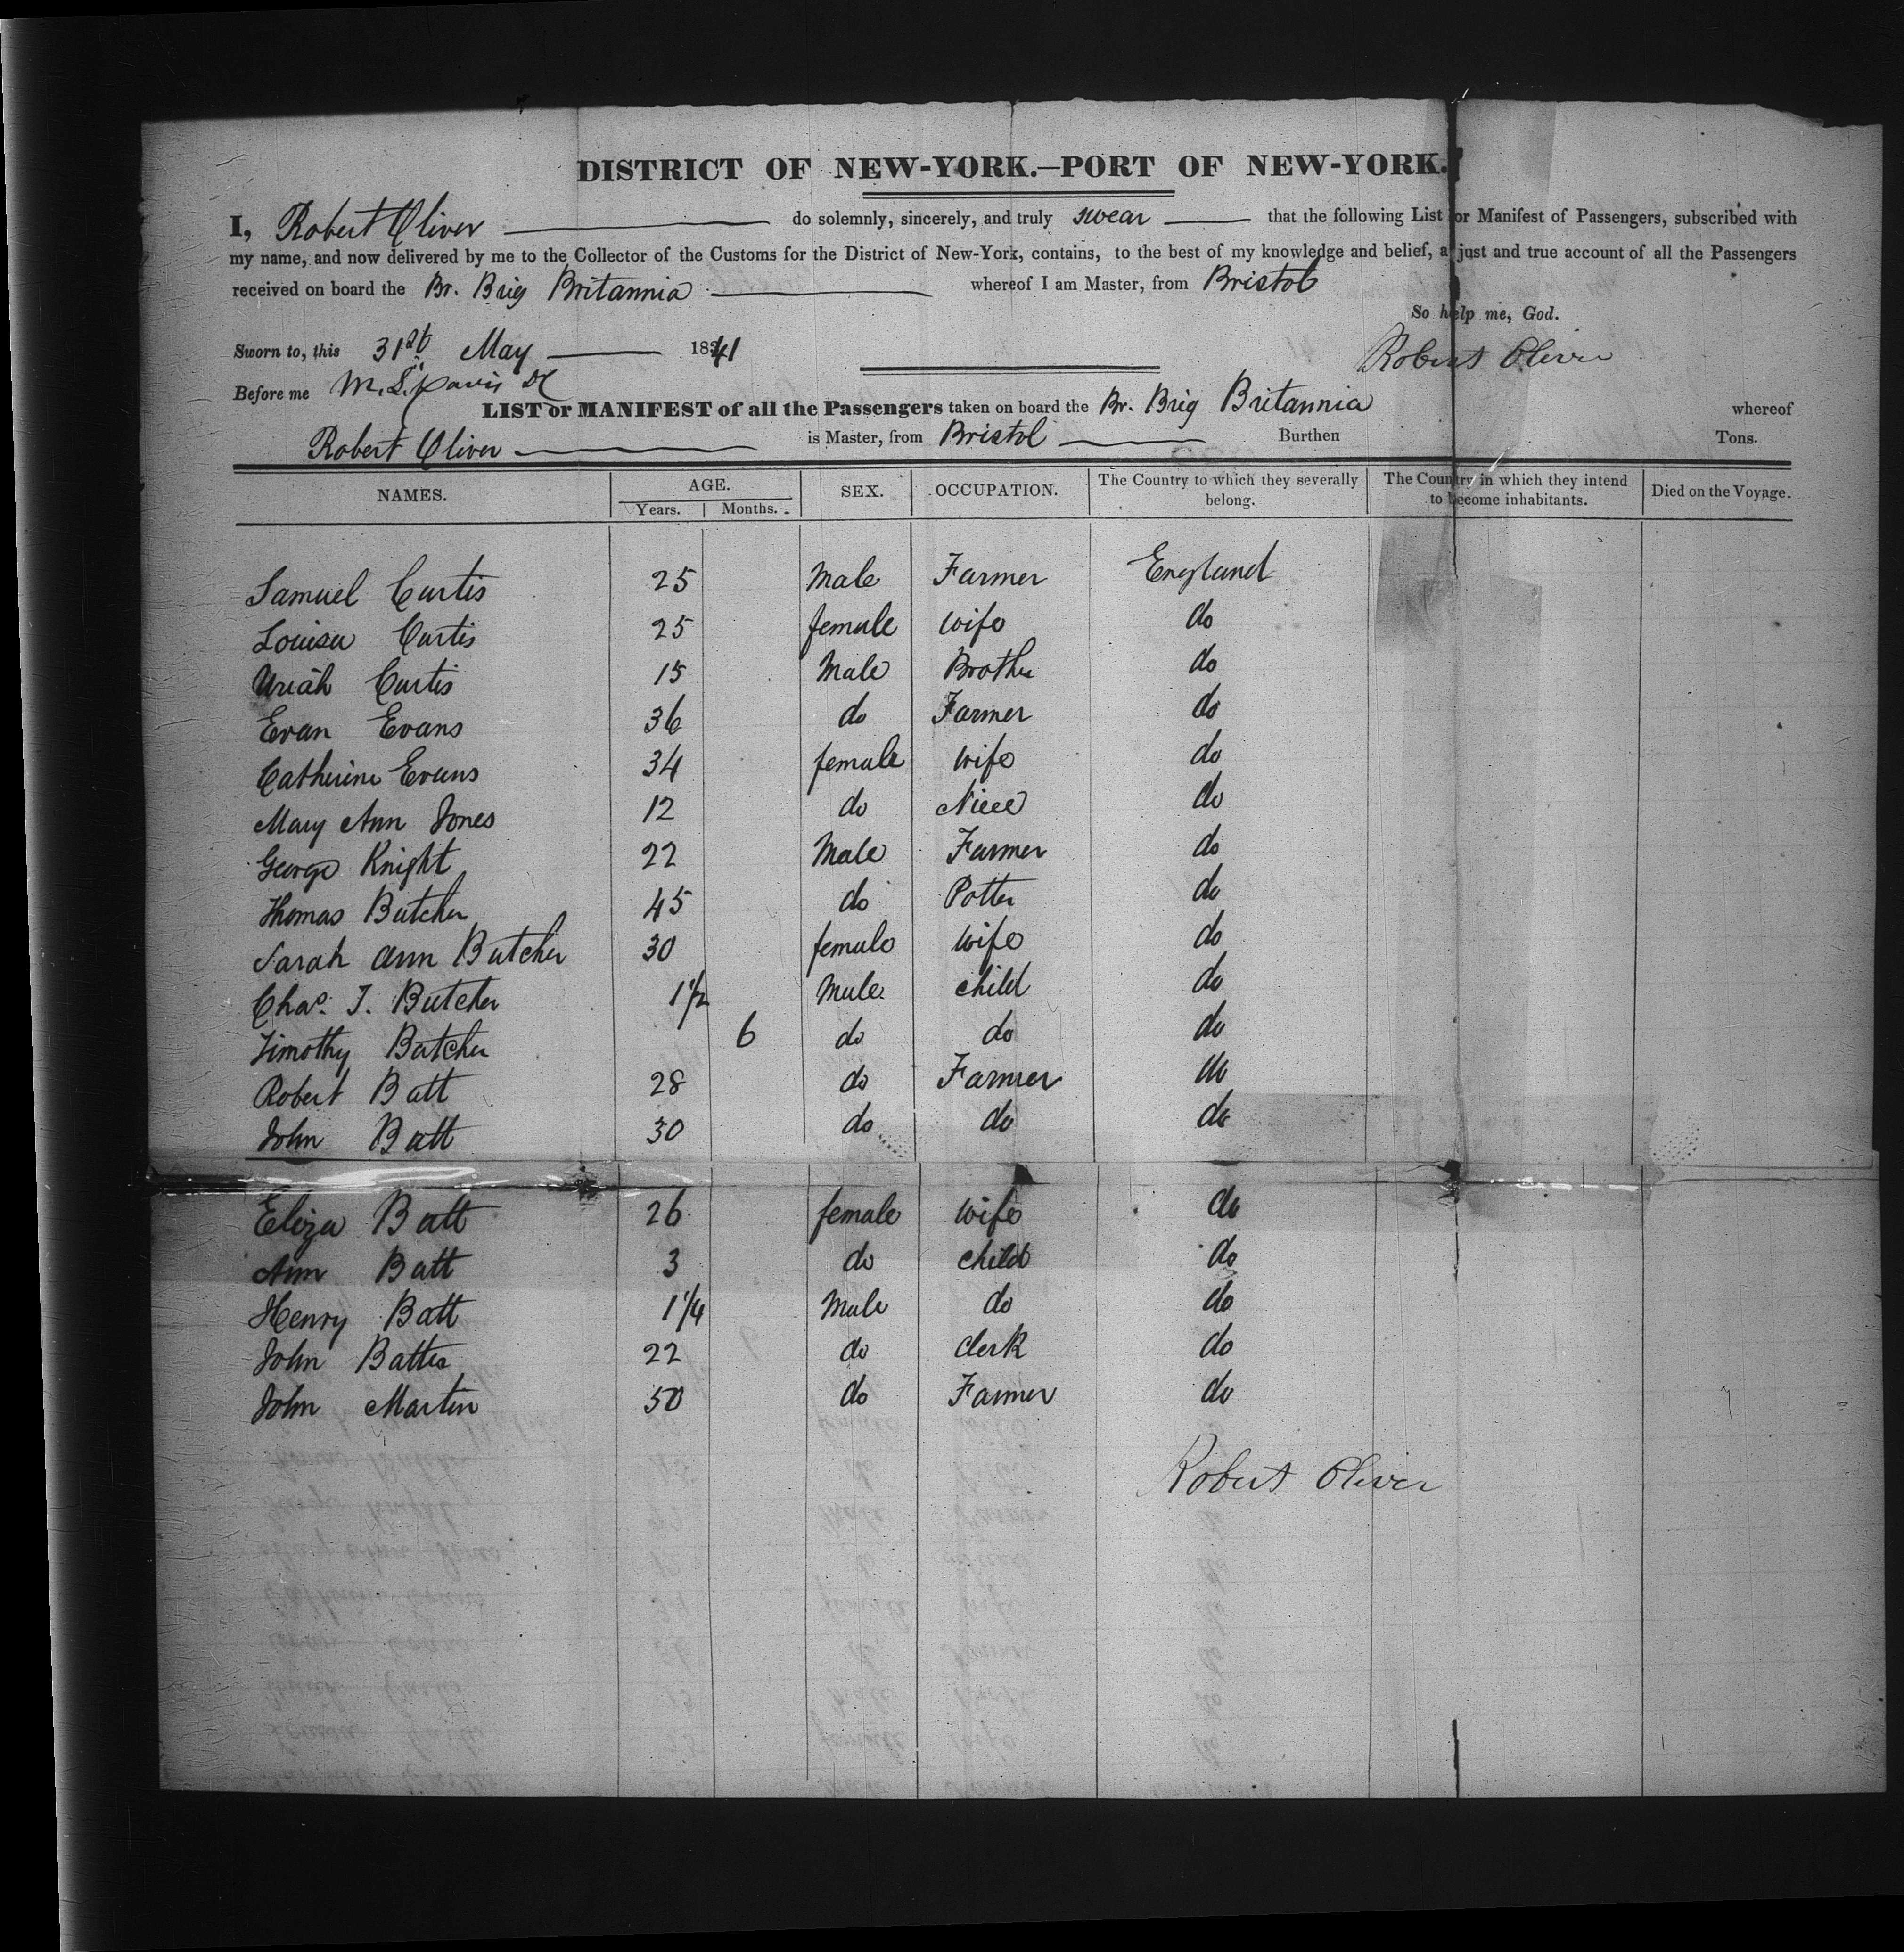 DISTRICT OF NEW-YORK.—PORT OF NEW-YORK.
I, Robert Oliver do solemnly, sincerely, and truly swear that the following List or Manifest of Passengers, subscribed with
my name, and now delivered by me to the Collector of the Customs for the District of New-York, contains, to the best of my knowledge and belief, a just and true account of all the Passengers
received on board the Br. Brig Britannia whereof I am Master, from Bristol
So help me, God.
Sworn to, this 31st May 1841
Robert Oliver
Before me M. L. Davis
LIST or MANIFEST of all the Passengers taken on board the Br. Brig Britannia whereof
Robert Oliver is Master, from Bristol Burthen Tons.
NAMES. AGE. Years. Months. SEX. OCCUPATION. The Country to which they severally belong. The Country in which they intend to become inhabitants. Died on the Voyage.
Samuel Curtis 25 Male Farmer England
Louisa Curtis 25 female wife do
Uriah Curtis 15 Male Brother do
Evan Evans 36 do Farmer do
Catherine Evans 34 female wife do
Mary Ann Jones 12 do Niece do
George Knight 22 Male Farmer do
Thomas Butcher 45 do Potter do
Sarah Ann Butcher 30 female wife do
Chas. T. Butcher 1 1/2 Male child do
Timothy Butcher 6 do do do
Robert Batt 28 do Farmer do
John Batt 30 do do do
Eliza Batt 26 female wife do
Ann Batt 3 do child do
Henry Batt 1 1/4 Male do do
John 22 do Clerk do
John Martin 50 do Farmer do
Robert Oliver